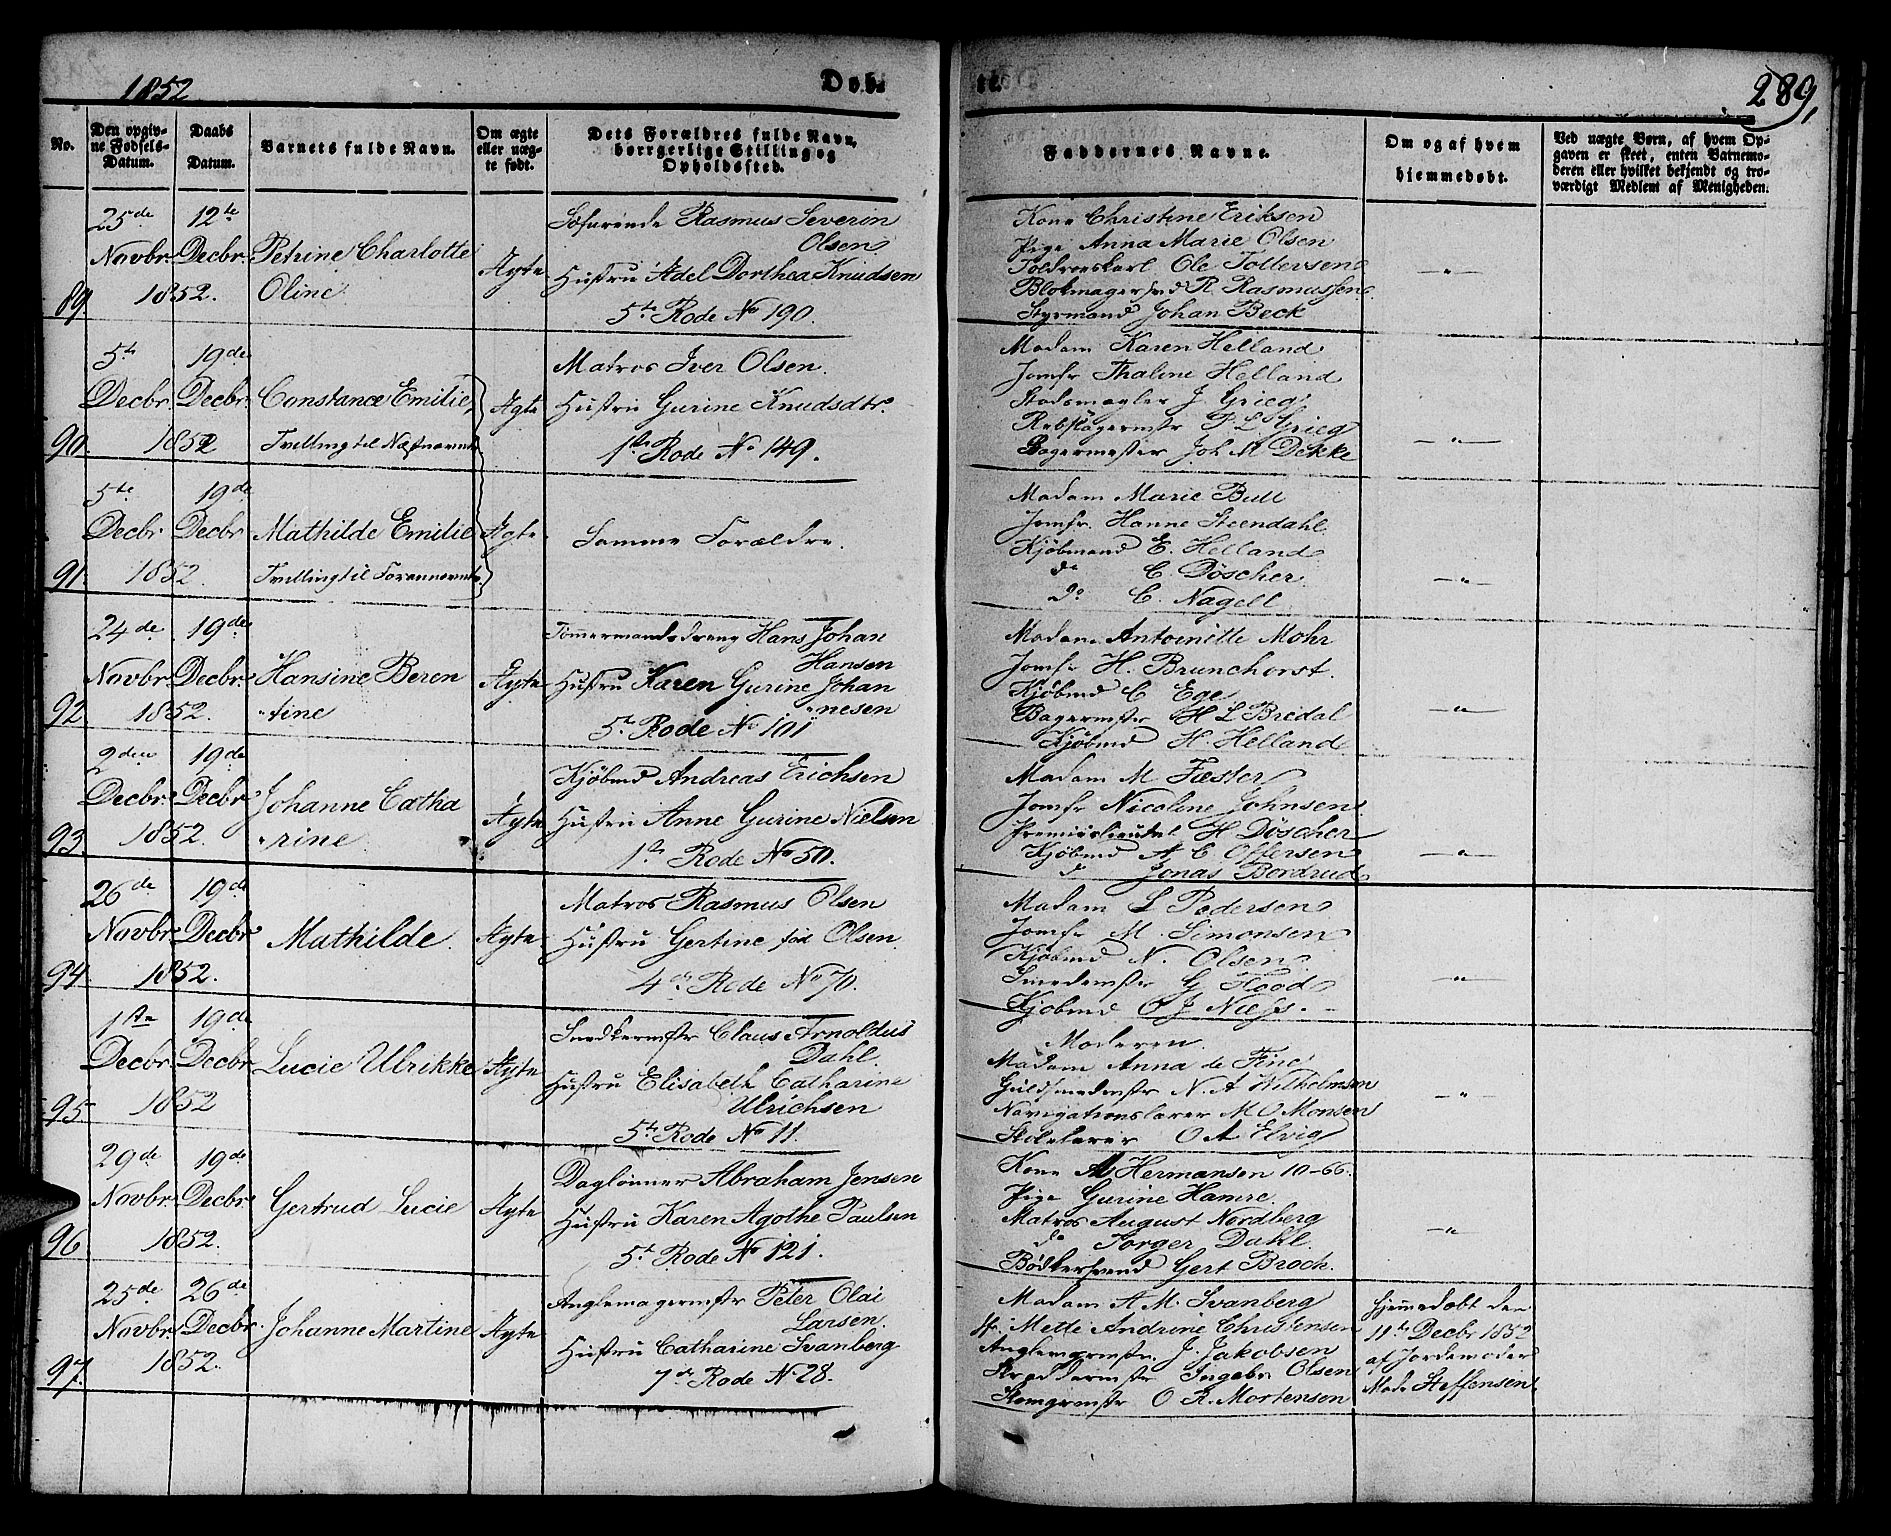 1852
Døb-
te.
289.
No.
Den opgiv-
ne Fødsels-
Datum.
Daabs
Datum.
Barnets fulde Navn.
Om ægte
eller uæg-
te født.
Dets Forældres fulde Navn,
borgerlige Stilling og
Opholdssted.
Faddernes Navne.
Om og af hvem
hjemmedøbt.
Ved uægte Børn, af hvem Op-
gaven er skeet, enten Barnemo-
deren eller hvilket bekjendt og tro-
værdigt Medlem af Menigheden.
89.
25de
Novbr.
12te
Decbr.
1852.
Petrine Charlotte
Oline
Ægte
Søfarende Rasmus Severin
Olsen
Hustru Adel Dorthea Knudsen
5te Rode No 190.
Kone Christine Eriksen
Pige Anna Marie Olsen
Ole Tollevsen
Blokmagersvd R. Rasmussen
Styrmand Johan Beck
— " —
90.
5te
Decbr.
19de
Decbr.
1852
Constance Emilie,
Tvilling til Næstnævnte
Ægte
Matros Iver Olsen.
Hustru Gurine Knudsdtr.
1ste Rode No 149.
Madam Karen Helland
Jomfr Thaline Helland
Stadsmægler J. Grieg
Rebslagermstr P. L. Grieg
Bagermester Joh M Dekke
— " —
91.
5te
Decbr
19de
Decbr
1852.
Mathilde Emilie
Tvilling til Forannævnte.
Ægte
Samme Forældre.
Madam Marie Bull
Jomfr. Hanne Steendahl
Kjøbmand E. Helland
do C. Döscher
do C. Nagell
— " —
92.
24de
Novbr
19de
Decbr.
1852.
Hansine Beren
"tine
Ægte
Tømmermandsdreng Hans Johan
Hansen
Hustru Karen Gurine Johan
"nesen
5te Rode No 101
Madam Antoinitte Mohr
Jomfr H. Brunchorst.
Kjøbmd C. Ege
Bagermstr H L Bredal
Kjøbmd H. Helland
— " —
93.
2den
Decbr.
19de
Decbr.
1852.
Johanne Catha
"rine
Ægte
Kjøbmd Andreas Erichsen
Hustru Anne Gurine Nielsen
1ste Rode No 50.
Madam M Fæster
Jomfr Nicoline Johnsen
Premierlieutnt H Döscher
Kjøbmd A C Offersen
d Jonas Bordrud
— " —
94.
26de
Novbr.
19de
Decbr.
1852.
Mathilde.
Ægte
Matros Rasmus Olsen
Hustru Gertine fød Olsen
4de Rode No 70.
Madam L Pedersen
Jomfr M. Simonsen
Kjøbmd N. Olsen
Smedemstr G Flood
Kjøbmd O J Niess. —
— " —
95.
1ste
Decbr.
19de
Decbr.
1852
Lucie Ulrikke
Ægte
Snedkermstr Claus Arnoldus
Dahl
Hustru Elisabeth Catharine
Ulrichsen
5te Rode No 11.
Moderen.
Madam Anna de Fine
Guldsmedmstr N. A Wilhelmsen
Navigationslærer M O Monsen
Skolelærer O A Elvig
— " —
96.
29de
Novbr.
19de
Decbr.
1852.
Gertrud Lucie
Ægte
Daglønner Abraham Jensen
Hustru Karen Agothe Paulsen
5te Rode No 121.
Kone A Hermansen 10-66.
Pige Gurine Hamre.
Matros August Nordberg
do Torger Dahl.
Bødkersvend Gert Broch.
— " —
97.
25de
Novbr.
26de
Decbr.
1852.
Johanne Martine
Ægte
Anglemagermstr Peter Olai
Larsen.
Hustru Catharine Svanberg
7de Rode No 28.
Madam A M. Svanberg
Mette Andrine Christensen
J. Jakobsen
Skræddermstr Ingebr Olsen
O R. Mortensen
hjemmedøbt den
11te Decbr 1852
af Jordemoder
Made Steffensen